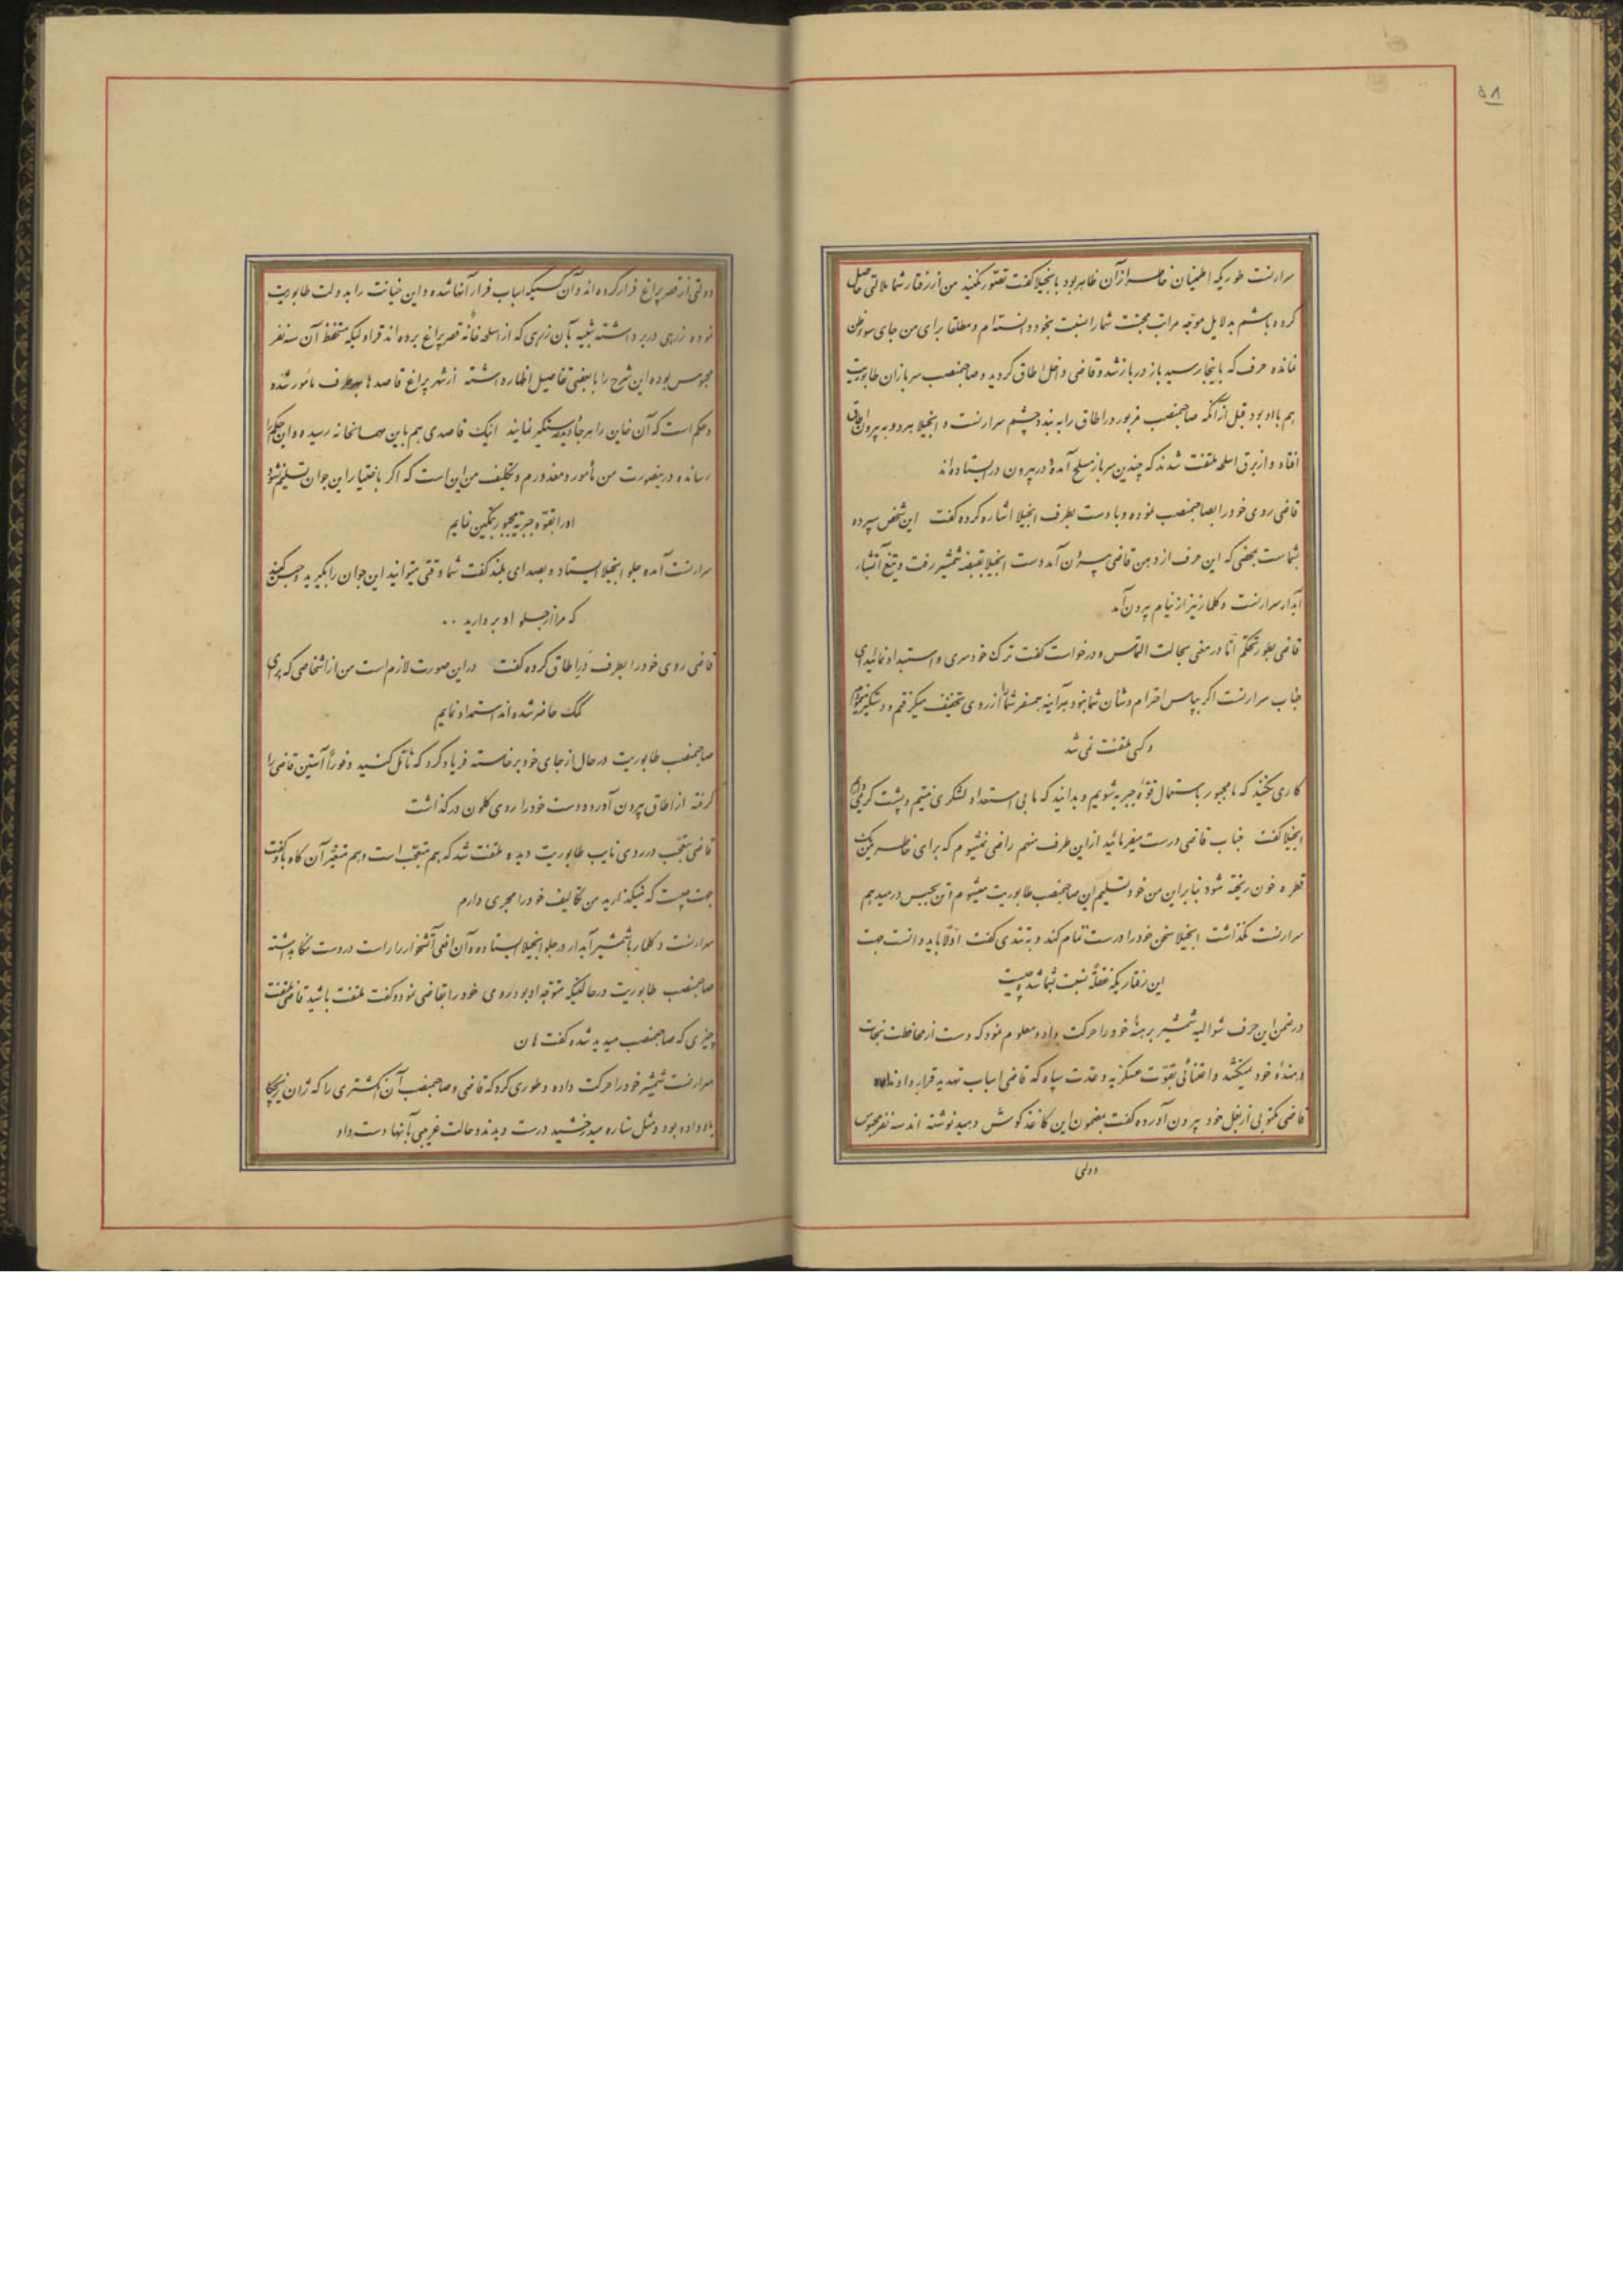 ۵۸
سرارنست طوریکه اطمینان خاطر از آن ظاهر بود بانجیلا گفت تصور نکنید من از رفتار شما ملالتی حاصل
کرده باشم بدلایل موجه مراتب محبت شما را نسبت بخود دانسته‌ام و مطلقا برای من جای سوء ظن
نمانده حرف که باینجا رسید باز در باز شد و قاضی داخل اطاق گردید و صاحبمنصب سربازان طابوریت
هم با او بود قبل از آنکه صاحبمنصب مزبور در اطاق را به بندد چشم سرارنست و انجیلا هر دو به بیرون اطاق
افتاد و از برق اسلحه ملتفت شدند که چندین سرباز مسلح آمده در بیرون در ایستاده‌اند
قاضی روی خود را بصاحبمنصب نموده و با دست بطرف انجیلا اشاره کرده گفت این شخص سپرده
بشماست بمحض که این حرف از دهن قاضی بیرون آمد دست انجیلا بقبضه شمشیر رفت و تیغ آتشبار
آبدار سرارنست دکلمار نیز از نیام بیرون آمد
قاضی بطور تحکم اما در معنی بحالت التماس و درخواست گفت ترک خودسری و استبداد نمائید ای
جناب سرارنست اگر بپاس احترام و شان شما نبود هرآینه همسفر شما را از روی تخفیف میگرفتم و دستگیر
و کسی ملتفت نمی شد
کاری نکنید که ما مجبور باستعمال قوه جبریه شویم و بدانید که ما بی استعداد لشکری نیستیم و پشت گرمی
انجیلا گفت جناب قاضی درست میفرمائید از این طرف منهم راضی نمیشوم که برای خاطر من یک
قطره خون ریخته شود بنابراین من خود تسلیم این صاحبمنصب طابوریت میشوم و تن بحبس در میدهم
سرارنست نگذاشت انجیلا سخن خود را درست تمام کند و به تندی گفت اولا باید دانست جهت
این رفتاریکه غفلة نسبت بشما شد چیست
در ضمن این حرف شوالیه شمشیر برهنه خود را حرکت داد و معلوم نمود که دست از محافظت نجات
دهنده خود نمیکشد و اعتنائی بقوت عسکریه و قدرت سپاه که قاضی اسباب تهدید قرار داد ندارد
قاضی مکتوبی از بغل خود بیرون آورده گفت بمضمون این کاغذ گوش دهید نوشته‌اند سه نفر محبوس
دولتی
دولتی از قصر پراغ فرار کرده‌اند و آن کسیکه اسباب فرار آنها شده و این خیانت را بدولت طابوریت
نموده زرهی در بر داشته شبیه بآن زرهی که از اسلحه خانه قصر پراغ برده‌اند قراولیکه مستحفظ آن سه نفر
محبوس بوده این شرح را با بعضی تفاصیل اظهار داشته از شهر پراغ قاصدها بهر طرف مامور شده
و حکم است که آن خاین را هر جا دیدند دستگیر نمایند اینک قاصدی هم باین مهمانخانه رسیده و این حکم را
رسانده درینصورت من مامور و معذورم و تکلیف من این است که اگر باختیار این جوان تسلیم نشود
او را بقوه جبریه مجبور بتمکین نمایم
سرارنست آمده جلو انجیلا ایستاد و بصدای بلند گفت شما وقتی میتوانید این جوان را بگیرید و حبس کنید
که مرا از جلو او بردارید ..
قاضی روی خود را بطرف در اطاق کرده گفت در این صورت لازم است من از اشخاصی که برای
کمک حاضر شده‌اند استمداد نمایم
صاحبمنصب طابوریت در حال از جای خود برخاسته فریاد کرد که تامل کنید و فوراً آستین قاضی را
گرفته از اطاق بیرون آورد و دست خود را روی کلون در گذاشت
قاضی بتعجب در روی نایب طابوریت دیده ملتفت شد که هم متعجب است و هم متغیر آن گاه باو گفت
جهت چیست که نمیگذارید من تکالیف خود را مجری دارم
سرارنست دکلمار با شمشیر آبدار در جلو انجیلا ایستاده و آن افعی آتشخوار را راست در دست نگاه داشته
صاحبمنصب طابوریت در حالتیکه متوجه او بود روی خود را بقاضی نمود و گفت ملتفت باشید قاضی ملتفت
چیزی که صاحبمنصب میدید شده گفت هان
سرارنست شمشیر خود را حرکت داده و طوری کرد که قاضی و صاحبمنصب آن انگشتری را که ژان زیچکا
باو داده بود و مثل ستاره میدرخشید درست دیدند و حالت غریبی بآنها دست داد